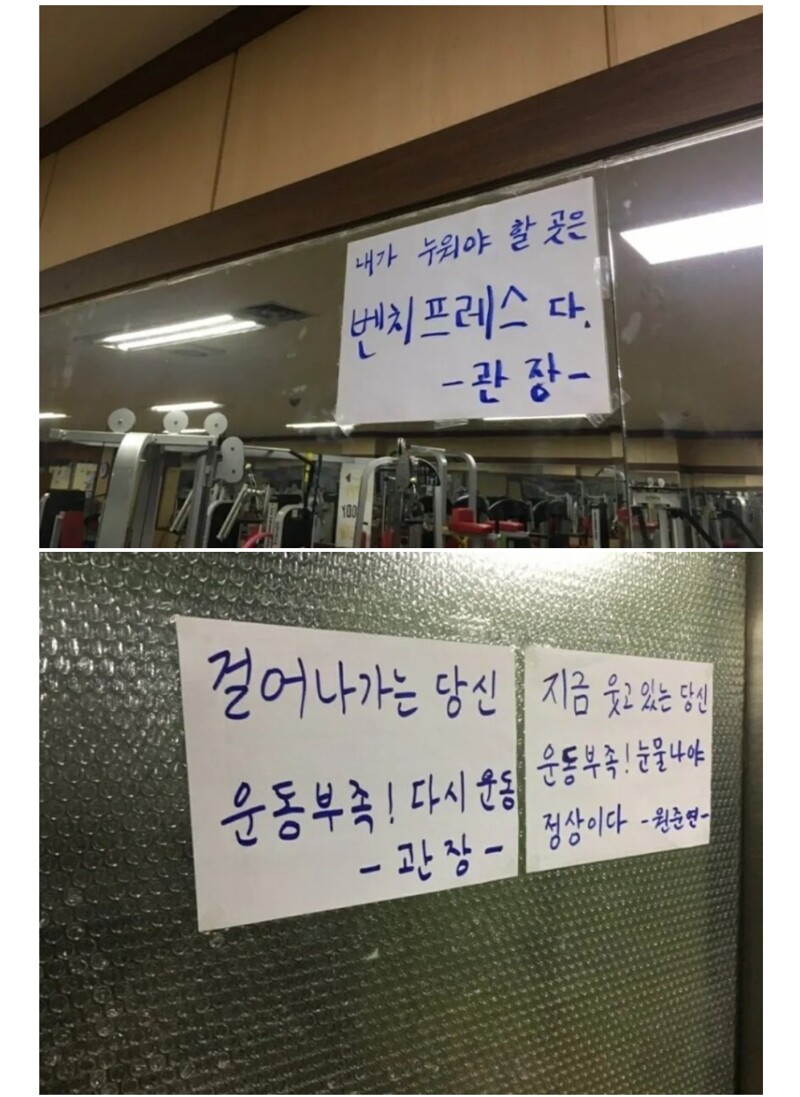 내가 누워야 할 곳은
벤치프레스 다.
-관장-
걸어나가는 당신
운동부족! 다시 운동
-관장-
지금 웃고 있는 당신
운동부족! 눈물나야
정상이다 -원준연-